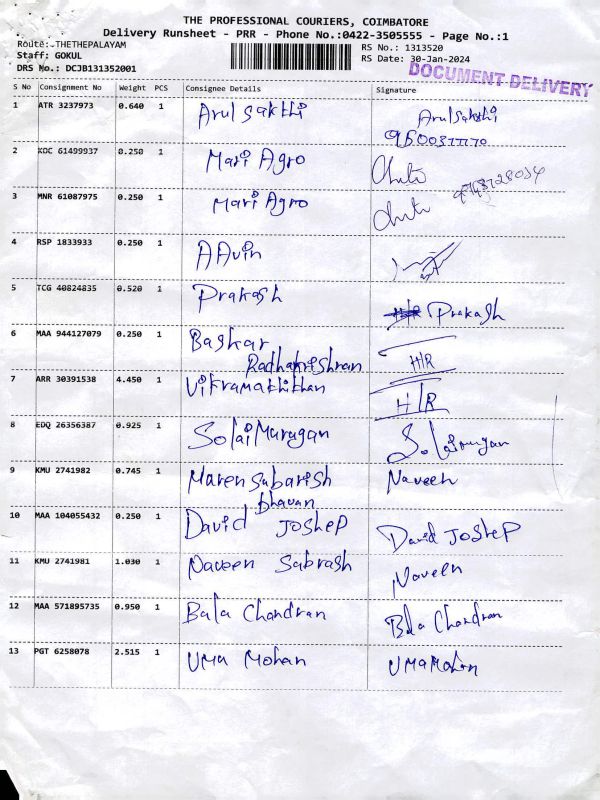 THE PROFESSIONAL COURIERS, COIMBATORE
Delivery Runsheet - PRR - Phone No.:0422-3505555 - Page No.:1
Route: THETHEPALAYAM
RS No.: 1313520
Staff: GOKUL
RS Date: 30-Jan-2024
DRS No.: DCJB131352001
DOCUMENT DELIVERY
S No Consignment No Weight PCS Consignee Details Signature
1 ATR 3237973 0.640 1 Arul Sakthi Arul Sakthi
2 KOC 61499937 0.250 1 Mari Agro
3 MNR 61087975 0.250 1 Mari Agro
4 RSP 1833933 0.250 1 AAvin
5 TCG 40824835 0.520 1 Prakash Prakash
6 MAA 944127079 0.250 1 Baskar
Radhakrishnan H/R
7 ARR 30391538 4.450 1 Vikramathithan H/R
8 EDQ 26356387 0.925 1 Solai Murugan
9 KMU 2741982 0.745 1 Maren Sabarish Naveen
bhavan
10 MAA 104055432 0.250 1 David JOSHEP David JOSHEP
11 KMU 2741981 1.030 1 Naveen Sabrash Naveen
12 MAA 571895735 0.950 1 Bala Chandran Bala Chandran
13 PGT 6258078 2.515 1 UMA Mohan UMA Mohan